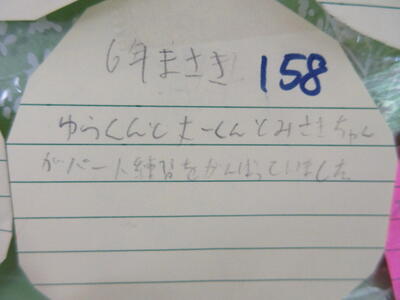 6年まさき
158
ゆうくんと たーくんとみさきちゃん
がパート練習をがんばっていました